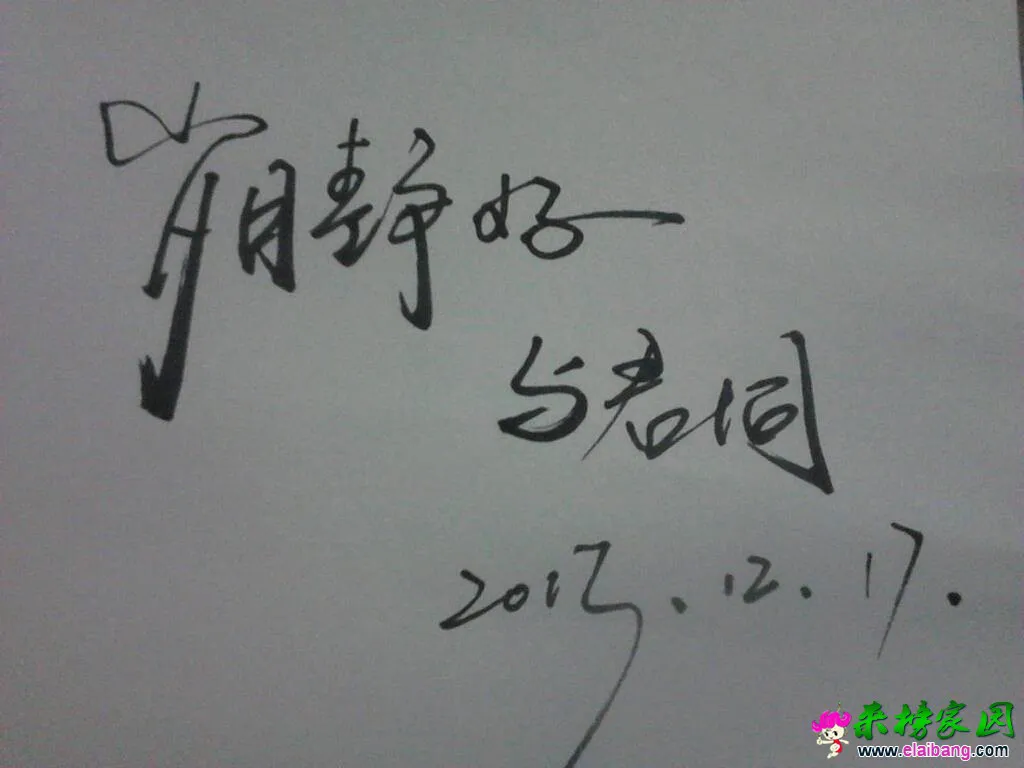 岁月静好
与君同
2013.12.17.
来榜家园
www.elaibang.com